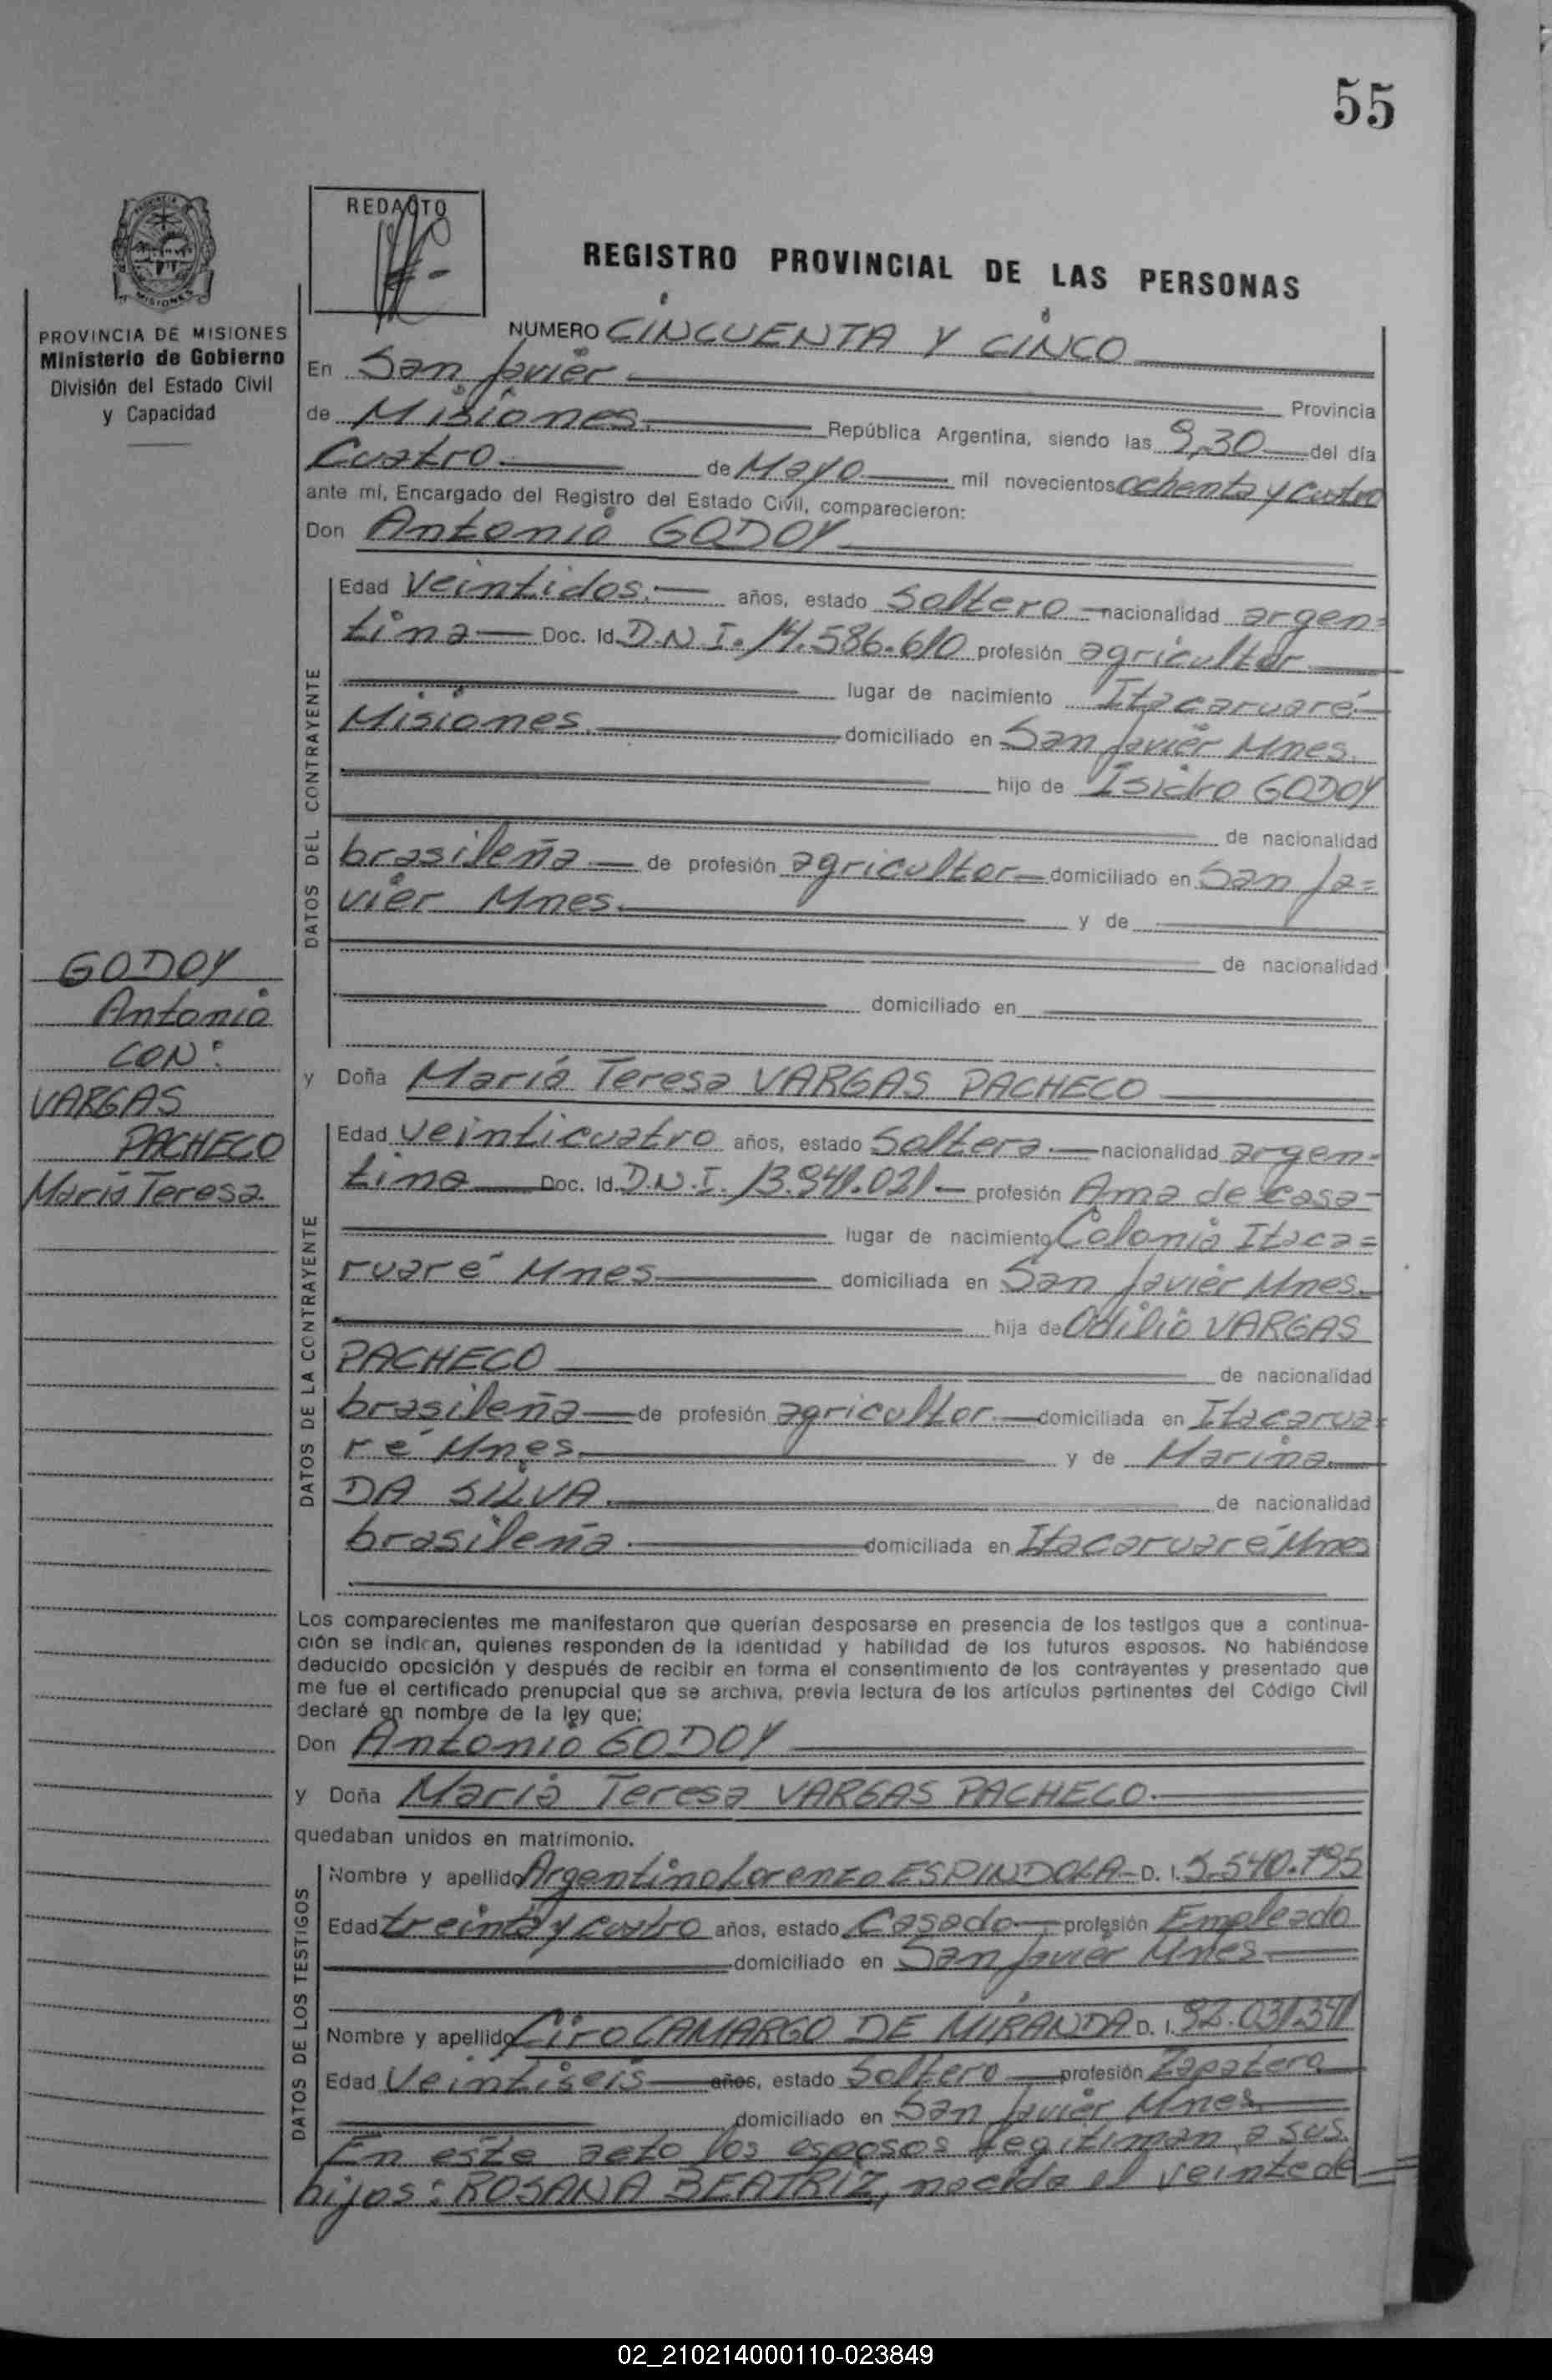 55
REDACTO
REGISTRO PROVINCIAL DE LAS PERSONAS
PROVINCIA DE MISIONES
Ministerio de Gobierno
División del Estado Civil
y Capacidad
NUMERO CINCUENTA Y CINCO
En San Javier
Provincia
de Misiones. República Argentina, siendo las 9,30 del día
Cuatro de Mayo mil novecientos ochenta y cuatro
ante mí, Encargado del Registro del Estado Civil, comparecieron:
Don Antonio GODOY
DATOS DEL CONTRAYENTE
Edad Veintidos. años, estado Soltero nacionalidad argen=
tina Doc. Id. D.N.I. 14.586.610 profesión agricultor
lugar de nacimiento Itacaruaré
Misiones. domiciliado en San Javier Mnes.
hijo de Isidro GODOY
de nacionalidad
brasileña de profesión agricultor domiciliado en San Ja=
vier Mnes. y de
de nacionalidad
domiciliado en
GODOY
Antonio
CON:
VARGAS
PACHECO
María Teresa.
y Doña María Teresa VARGAS PACHECO
DATOS DE LA CONTRAYENTE
Edad Veinticuatro años, estado Soltera. nacionalidad argen=
tina Doc. Id. D.N.I. 13.941.021 profesión Ama de casa
lugar de nacimiento Colonia Itaca=
ruaré Mnes domiciliada en San Javier Mnes.
hija de Odilio VARGAS
PACHECO de nacionalidad
brasileña de profesión agricultor. domiciliada en Itacarua=
ré Mnes. y de Marina
DA SILVA. de nacionalidad
brasileña. domiciliada en Itacaruaré Mnes
Los comparecientes me manifestaron que querían desposarse en presencia de los testigos que a continua-
ción se indican, quienes responden de la identidad y habilidad de los futuros esposos. No habiéndose
deducido oposición y después de recibir en forma el consentimiento de los contrayentes y presentado que
me fue el certificado prenupcial que se archiva, previa lectura de los artículos pertinentes del Código Civil
declaré en nombre de la ley que:
Don Antonio GODOY
y Doña María Teresa VARGAS PACHECO.
quedaban unidos en matrimonio.
DATOS DE LOS TESTIGOS
Nombre y apellido Argentino Lorenzo ESPINDOLA D. I. 5.540.795
Edad treinta y cuatro años, estado Casado profesión Empleado
domiciliado en San Javier Mnes.
Nombre y apellido Ciro CAMARGO DE MIRANDA D. I. 92.031.341
Edad Veintiseis años, estado Soltero profesión Zapatero
domiciliado en San Javier Mnes.
En este acto los esposos legitiman a sus
hijos: ROSANA BEATRIZ, nacida el veinte de
02_210214000110-023849